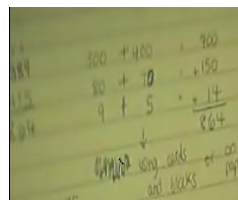 89 300 + 400 = 700
80 + 70 = +150
9 + 5 = + 14
64 864
↓
using cards or on
and blocks pap